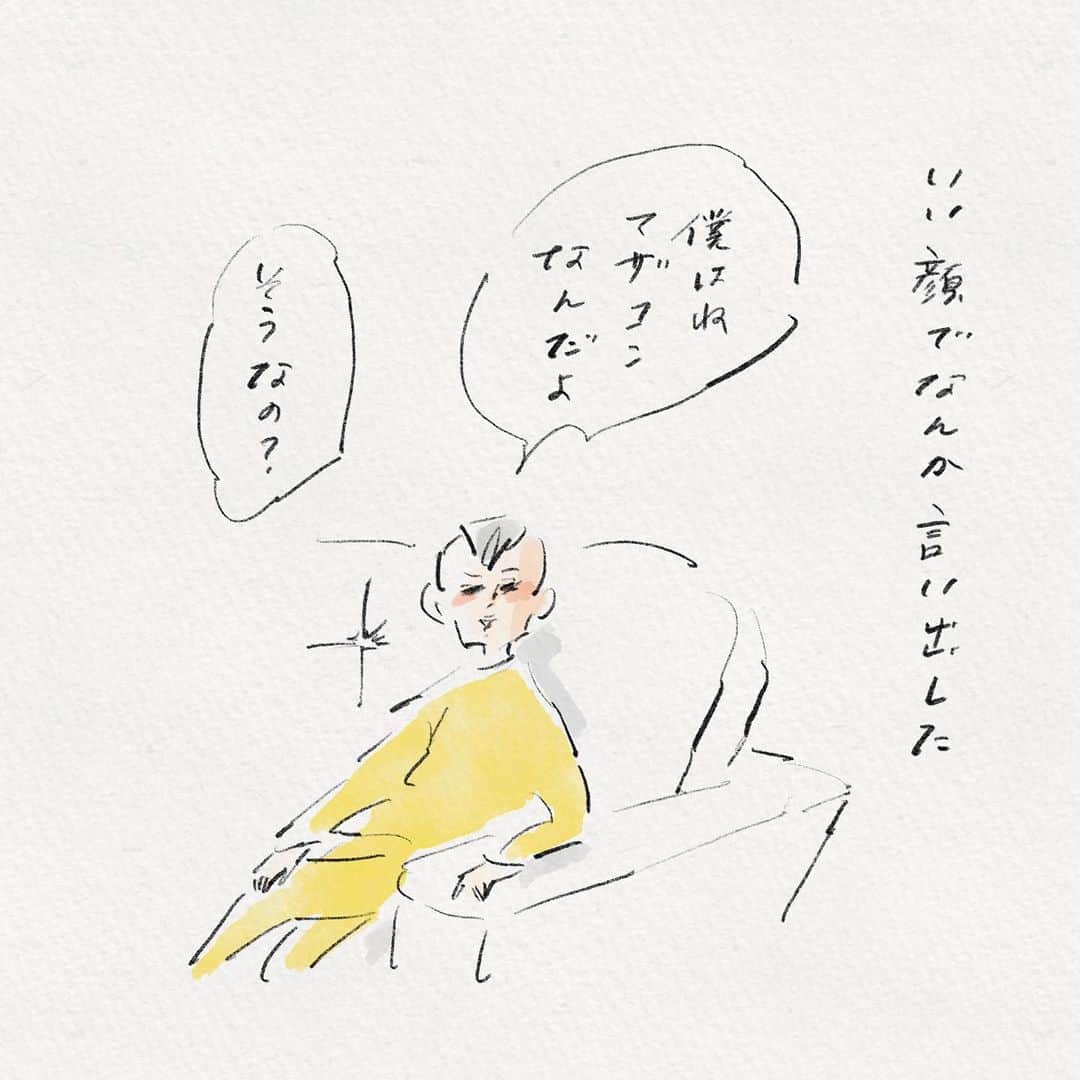 いい顔でなんか言い出した
僕はね
マザコン
なんだよ
そうなの?